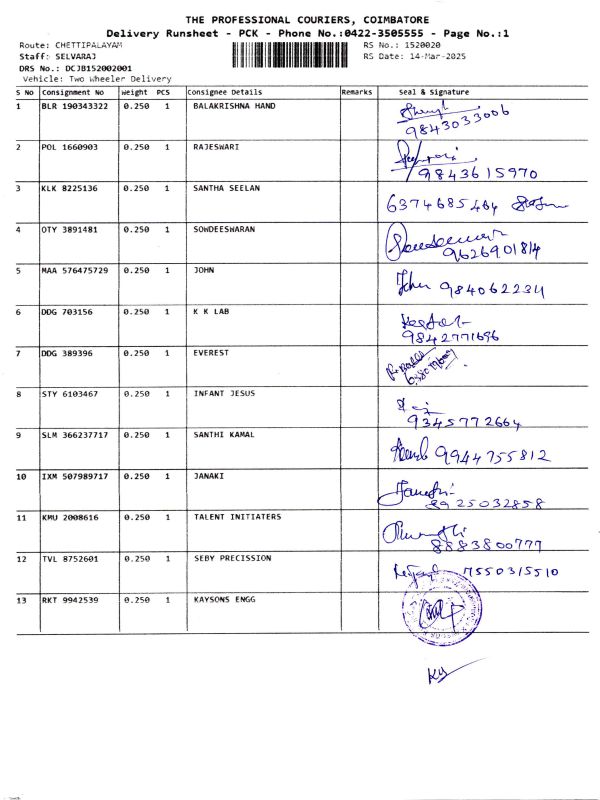 THE PROFESSIONAL COURIERS, COIMBATORE
Delivery Runsheet - PCK - Phone No.:0422-3505555 - Page No.:1
Route: CHETTIPALAYAM RS No.: 1520020
Staff: SELVARAJ RS Date: 14-Mar-2025
DRS No.: DCJB152002001
Vehicle: Two Wheeler Delivery
S No Consignment No Weight PCS Consignee Details Remarks Seal & Signature
1 BLR 190343322 0.250 1 BALAKRISHNA HAND
9843033006
2 POL 1660903 0.250 1 RAJESWARI
9843615970
3 KLK 8225136 0.250 1 SANTHA SEELAN
6374685464
4 OTY 3891481 0.250 1 SOWDEESWARAN
9626901814
5 MAA 576475729 0.250 1 JOHN
John 984062234
6 DDG 703156 0.250 1 K K LAB
9842771696
7 DDG 389396 0.250 1 EVEREST
8 STY 6103467 0.250 1 INFANT JESUS
9345772664
9 SLM 366237717 0.250 1 SANTHI KAMAL
9944755812
10 IXM 507989717 0.250 1 JANAKI
8925032858
11 KMU 2008616 0.250 1 TALENT INITIATERS
8883800777
12 TVL 8752601 0.250 1 SEBY PRECISSION
7550315510
13 RKT 9942539 0.250 1 KAYSONS ENGG